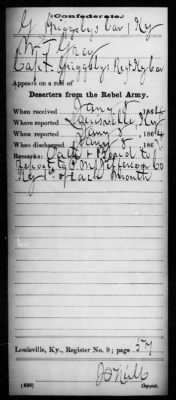 (Confederate.)
G Griggsby's Cav | Ky
W. J. Gray
Capt. Griggsby's Regt Ky Cav
Appears on a roll of
Deserters from the Rebel Army.
When received Jany 8 1864
Where reported Louisville, Ky
When reported Jany 8 1864
When discharged Jany 8 186
Remarks: Oath & Bond to
report to Jefferson Co
Ky 1st of each month
Louisville, Ky., Register No. 9; page 257
(639)
Copyist.